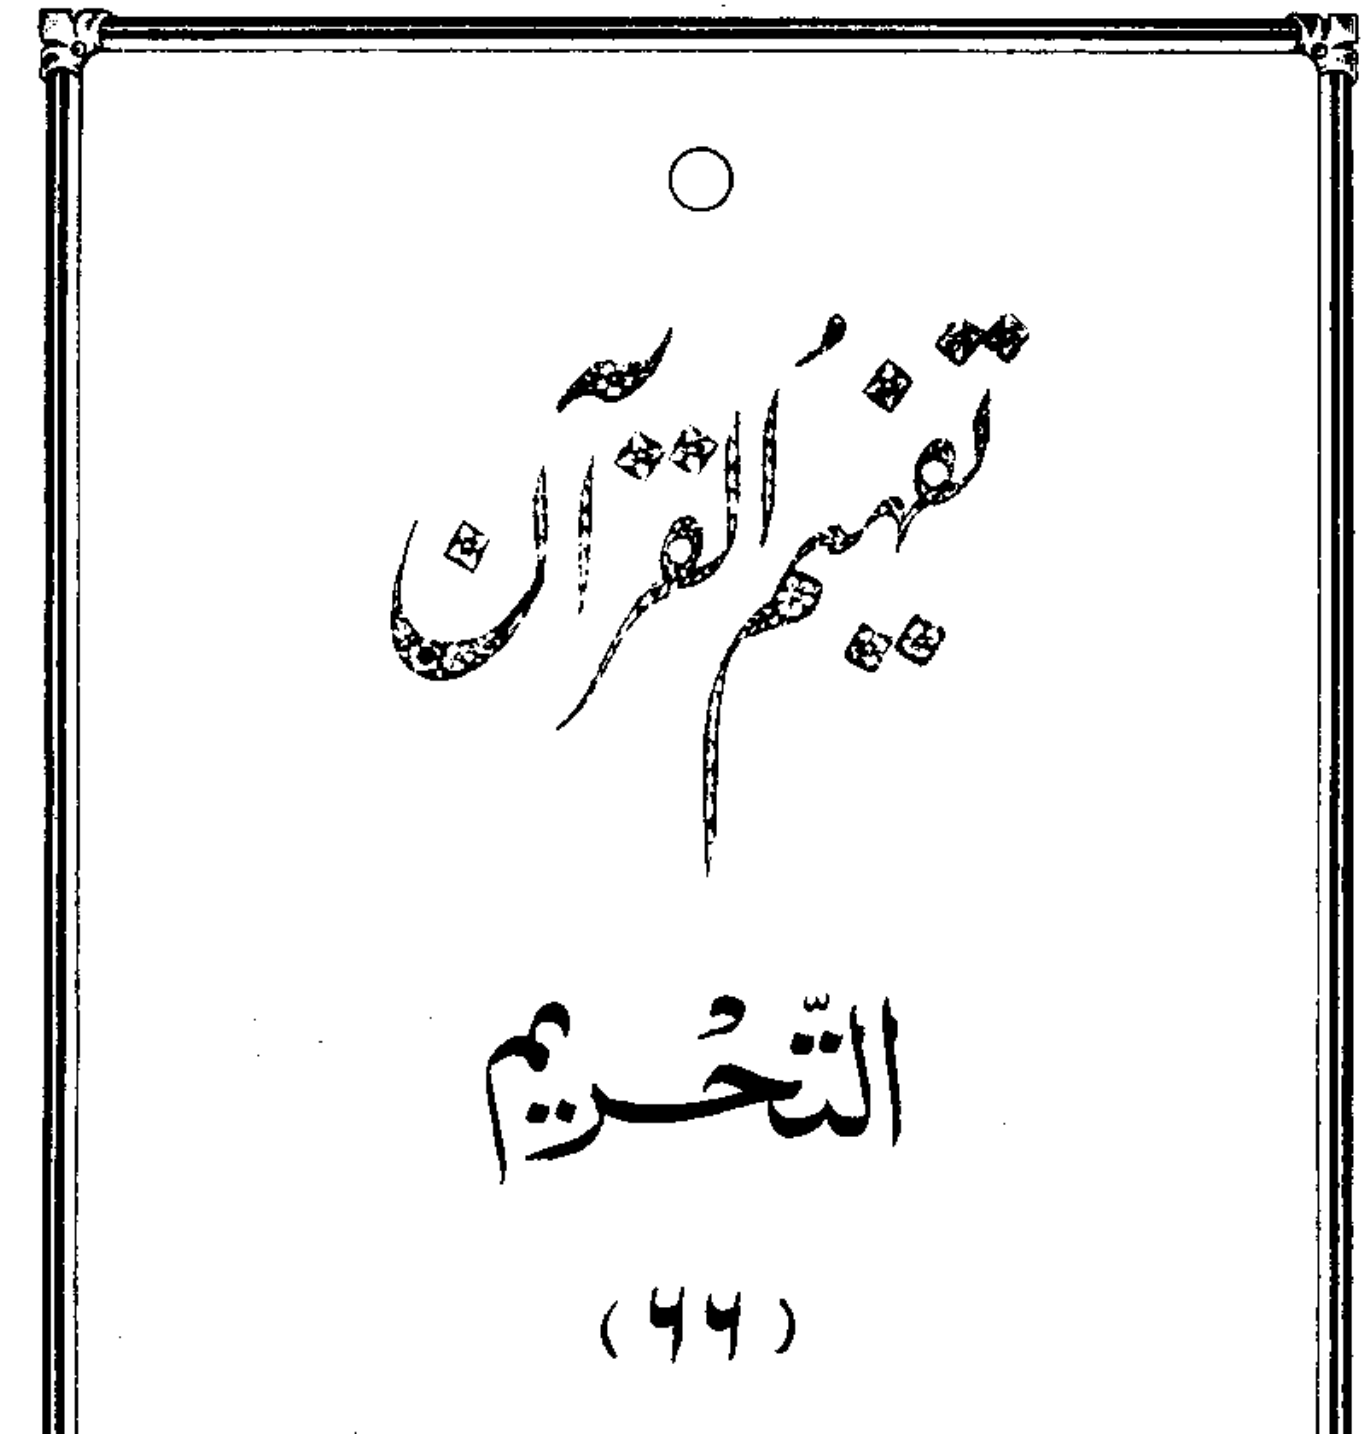 تفہیمُ القرآن
التّحریم
(۶۶)